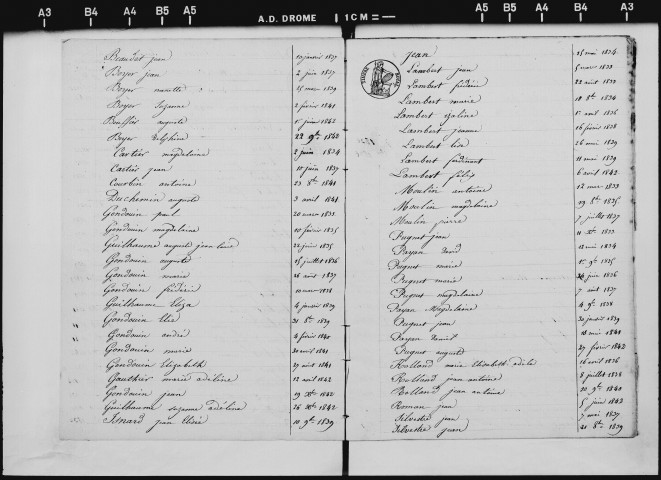 A3 B4 A4 B5 A5 A.D. DROME 1 CM A5 B5 A4 B4 A3
Beaudet jean 10 janvier 1837
Boyer jean 2 juin 1837
Boyer 15 mars 1839
Boyer Suzanne 2 février 1841
auguste 1er juin 1842
Boyer delphine 22 9bre 1842
Cartier magdelaine 2 juin 1834
Cartier jean 10 juin 1839
Courbon antoine 23 8bre 1841
Duchemin auguste 3 avril 1841
Gondouin paul 20 mars 1833
Gondouin magdelaine 10 février 1835
Guilhaume auguste jean 22 juin 1835
Gondouin auguste 15 juillet 1836
Gondouin marie 26 août 1837
Gondouin frédéric 1838
Guilhaume Eliza 4 janvier 1839
Gondouin Elie 31 8bre 1839
Gondouin andré 4 février 1840
Gondouin marie avril 1841
Gondouin Elizabeth 29 août 1841
Gauthier marie adéline 12 août 1842
Gondouin jean 29 Xbre 1842
Guilhaume Suzanne adéline 26 Xbre 1842
Isnard jean Elisée 10 9bre 1839
jean 25 mai 1834
Lambert jean 5 mars 1833
Lambert frédéric 22 août 1833
Lambert marie 18 8bre 1834
Lambert 1er avril 1836
Lambert jeanne 16 février 1838
Lambert 26 mai 1839
Lambert ferdinand 11 mai 1839
Lambert félix 6 avril 1842
Moulin antoine 12 mars 1833
Moulin magdelaine 29 8bre 1835
Moulin pierre 7 juillet 1837
Puguet jean 11 Xbre 1833
Payan david 13 mai 1834
Puguet marie 15 9bre 1835
Puguet marie 24 juin 1836
Puguet magdelaine 7 août 1837
Payan Magdelaine 4 9bre 1838
Puguet jean 20 janvier 1839
Payan daniel 18 mai 1840
Puguet auguste 27 février 1842
Rolland marie Elisabeth adèle 16 avril 1836
Rolland jean antoine 8 juillet 1838
Rolland jean antoine 20 9bre 1840
Roman jean 5 juin 1842
Silvestre jean 7 mai 1837
Silvestre jean 21 8bre 1839